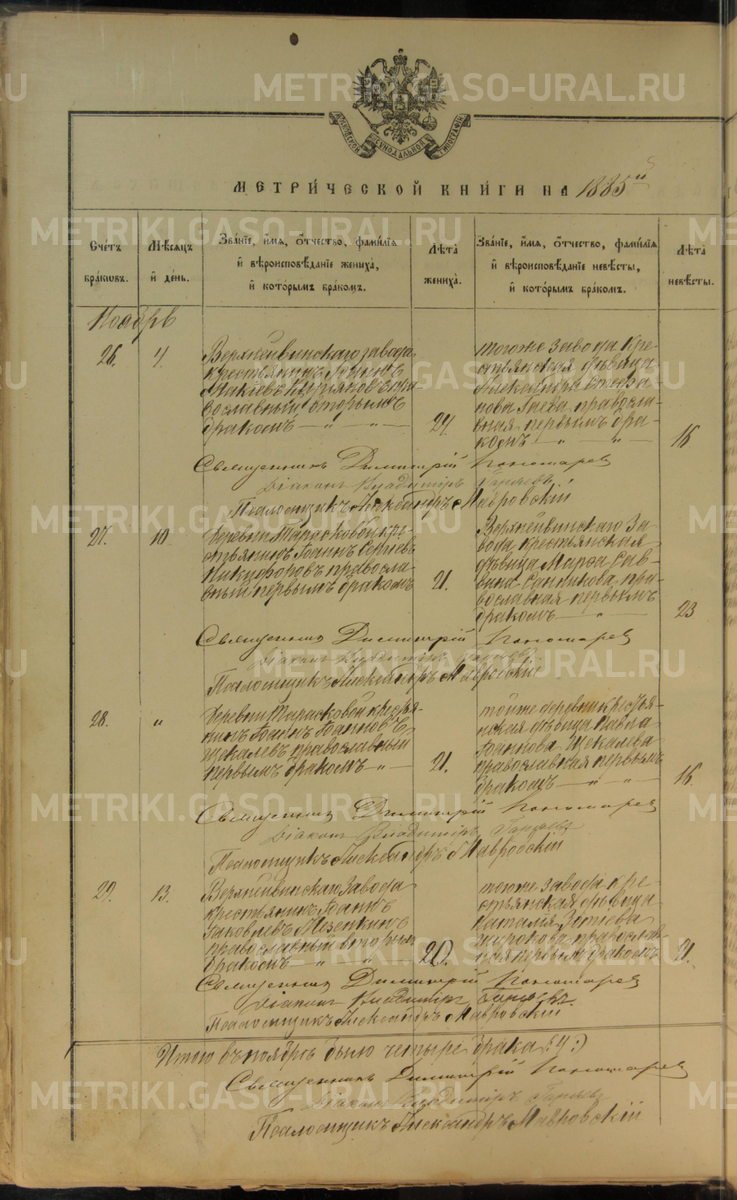 МЕТРИ́ЧЕСКОЙ КНИ́ГИ НА 1885й
Сче́тъ бра́кωвъ.
Мѣ́сяцъ и҆ де́нь.
Зва́нїе, и҆́мя, ѻ҆́тчество, фами́лїя и҆ вѣроисповѣ́данїе жениха̀, и҆ кото́рымъ бра́комъ.
Лѣ́та жениха̀.
Зва́нїе, и҆́мя, ѻ҆́тчество, фами́лїя и҆ вѣроисповѣ́данїе невѣ́сты, и҆ кото́рымъ бра́комъ.
Лѣ́та невѣ́сты.
Ноябрь
26.
4.
Верхнейвинскаго завода
крестьянинъ Іоаннъ
православный вторымъ
бракомъ
24
тогоже завода кре-
стьянская дѣвица
Александра
правосла-
вная первымъ бра-
комъ
16
Священникъ Димитрій Пономарев
Діаконъ Владимиръ
Псаломщикъ Александръ Мавровскій
27.
10.
Деревни Тарасковой кре-
стьянинъ Іоаннъ Сергѣев
Никифоровъ православ-
ный первымъ бракомъ
21.
Верхнейвинскаго За-
вода крестьянская
дѣвица Марѳа Сав-
вина Санникова, пра-
вославная первымъ
бракомъ
23
Священникъ Димитрій Пономарев
Діаконъ Владимиръ
Псаломщикъ Александръ Мавровскій
28.
"
Деревни Тарасковой крестья-
нинъ Іоаннъ Іоанновъ
Щекалевъ православный
первымъ бракомъ
21.
тойже деревни крестья-
нская дѣвица Павла
Іоаннова Щекалева
православная первымъ
бракомъ
16.
Священникъ Димитрій Пономарев
Діаконъ Владимиръ
Псаломщикъ Александръ Мавровскій
29.
13.
Верхнейвинскаго Завода
крестьянинъ Іоаннъ
Іаковлевъ Мезенкинъ
православный вторымъ
бракомъ
20.
тогоже завода кре-
стьянская дѣвица
Наталія
православ-
ная первымъ бракомъ
21.
Священникъ Димитрій Пономарев
Діаконъ Владимиръ
Псаломщикъ Александръ Мавровскій
Итого въ ноябрѣ было четыре брака (:4:)
Священникъ Димитрій Пономарев
Діаконъ Владимиръ
Псаломщикъ Александръ Мавровскій
METRIKI.GASO-URAL.RU